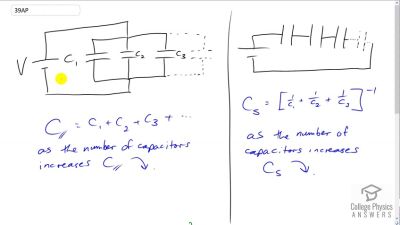 39AP
V
C₁
C₂
C₃
C∥ = C₁ + C₂ + C₃ + ...
as the number of capacitors
increases C∥ ↘.
Cₛ = [1/C₁ + 1/C₂ + 1/C₃]⁻¹
as the number of
capacitors increases
Cₛ ↘.
College Physics
ANSWERS